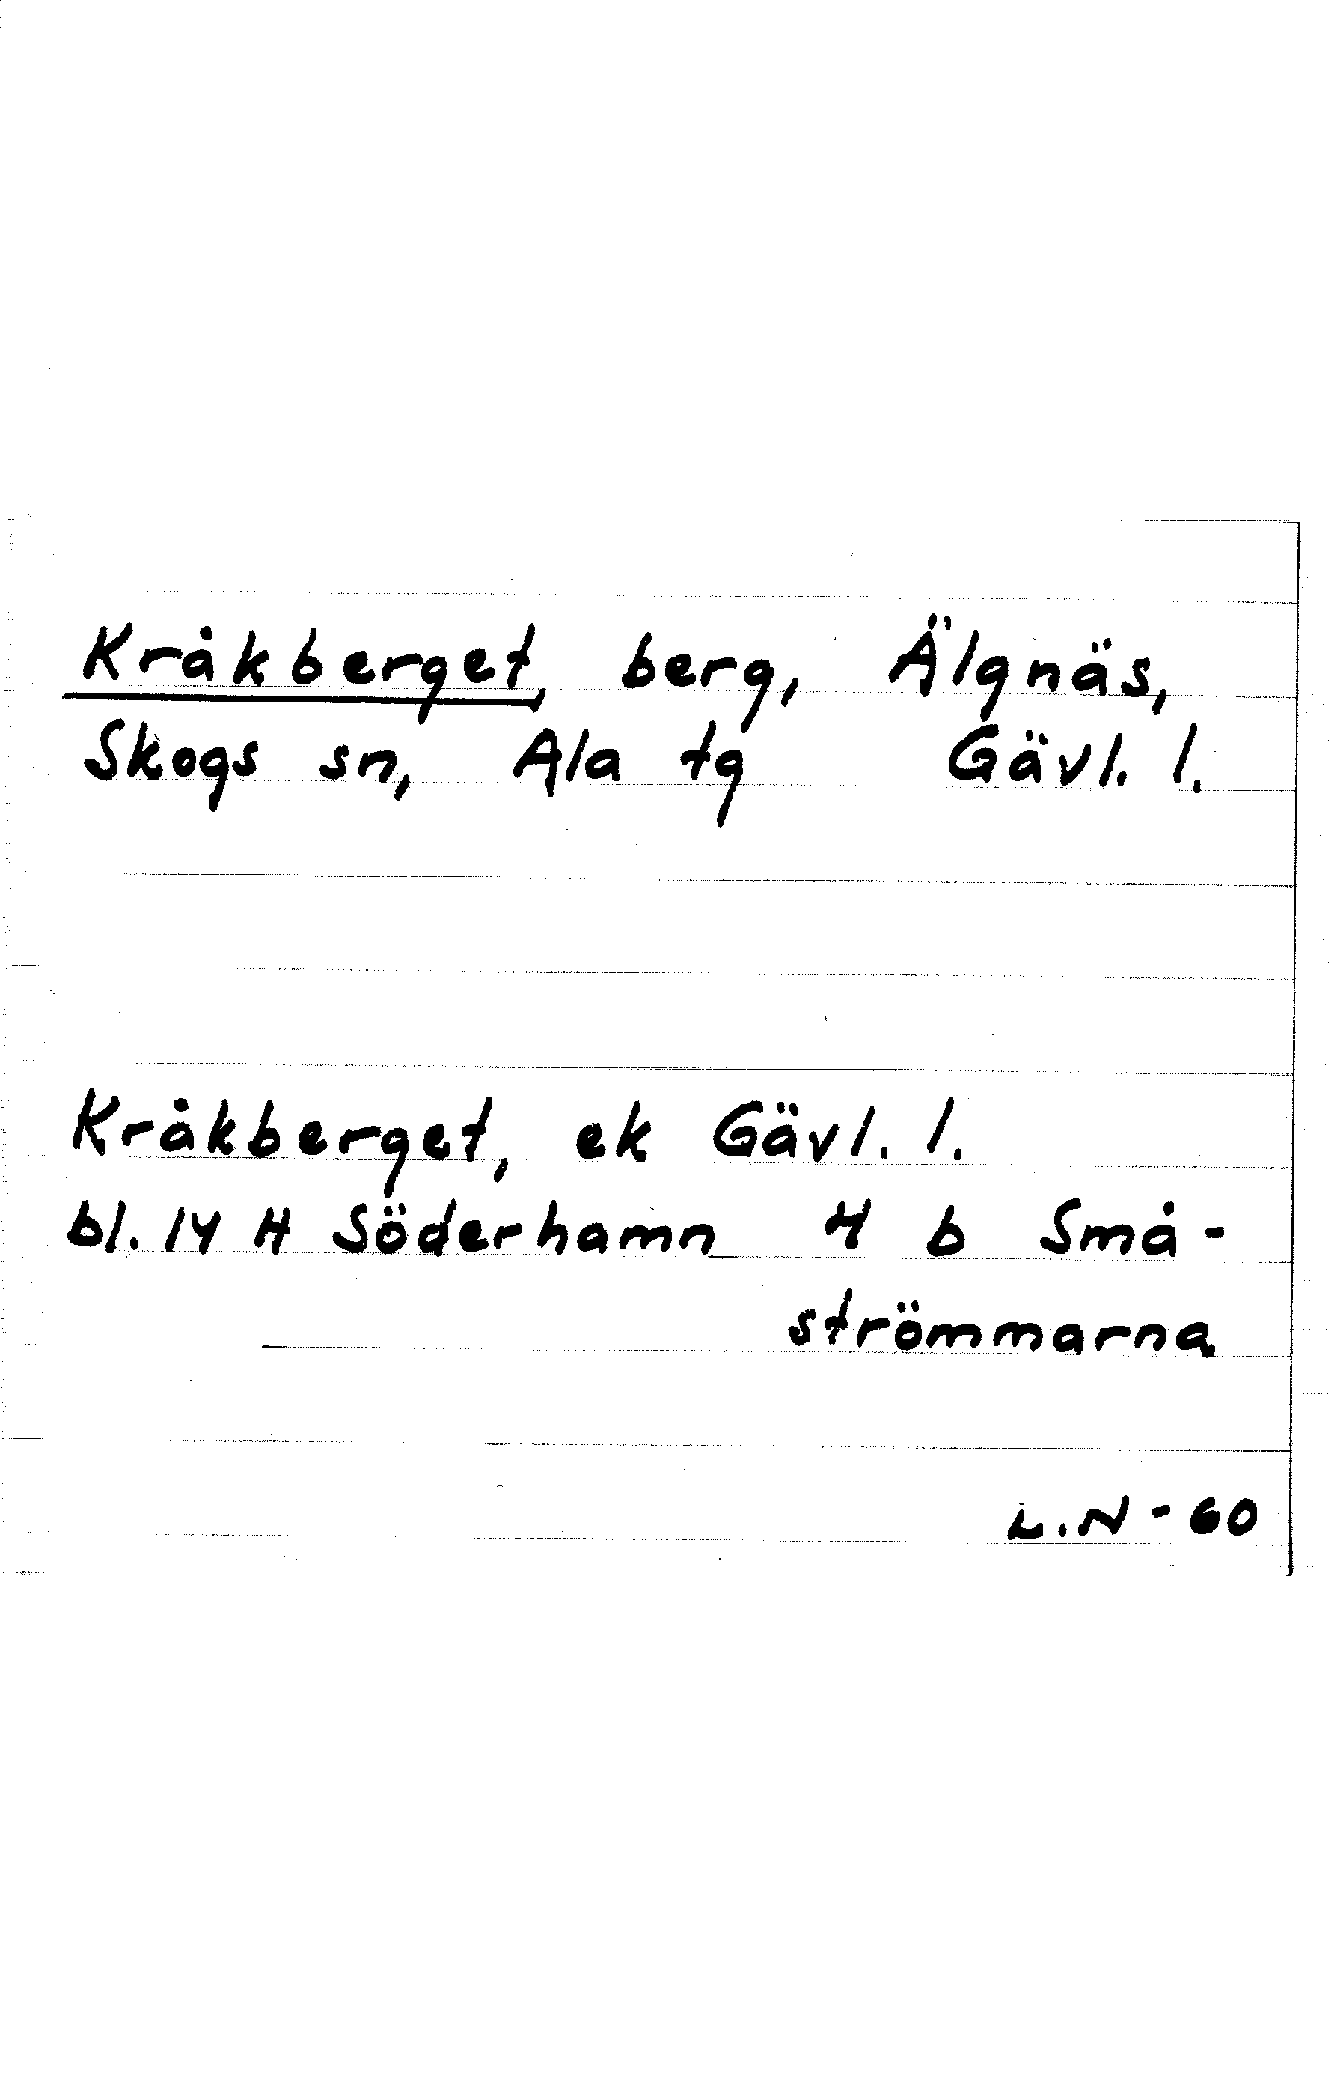 Kråkberget, berg, Älgnäs,
Skogs sn, Ala tg Gävl. l.
Kråkberget, ek Gävl. l.
bl. 14 H Söderhamn 4 b Små-
strömmarna
L.N - 60